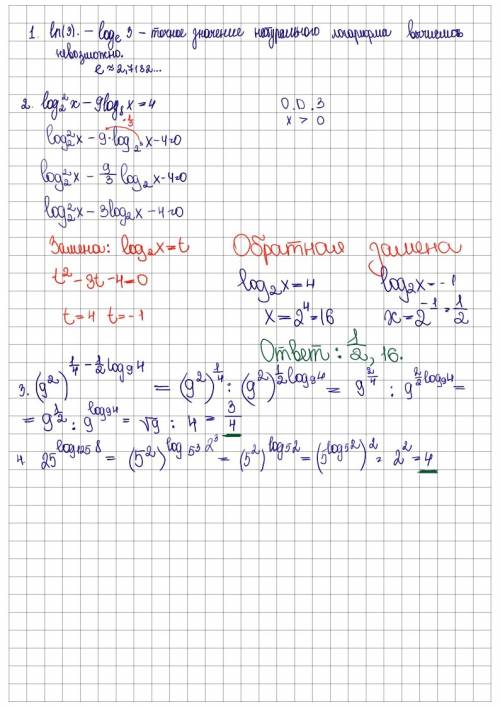 1. ln(3). – logₑ 3 – точное значение натурального логарифма вычислить
невозможно.
e ≈ 2,7182...
2. log₂²x – 9log₈x = 4
О.D.З
x > 0
log₂²x – 9·log₂³x – 4=0
·1/3
log₂²x – 9/3 log₂x – 4=0
log₂²x – 3log₂x – 4=0
Замена: log₂x = t
t² – 3t – 4 = 0
t = 4 t = –1
Обратная замена
log₂x = 4 log₂x = –1
x = 2⁴ = 16 x = 2⁻¹ = 1/2
Ответ: 1/2, 16.
3. (9²)^(1/4 – 1/2 log₉4) = (9²)^(1/4) : (9²)^(1/2 log₉4) = 9^(2/4) : 9^(2/2 log₉4) =
= 9^(1/2) : 9^(log₉4) = √9 : 4 = 3/4
4. 25^(log₁₂₅8) = (5²)^(log₅³2³) = (5²)^(log₅2) = (5^(log₅2))² = 2² = 4